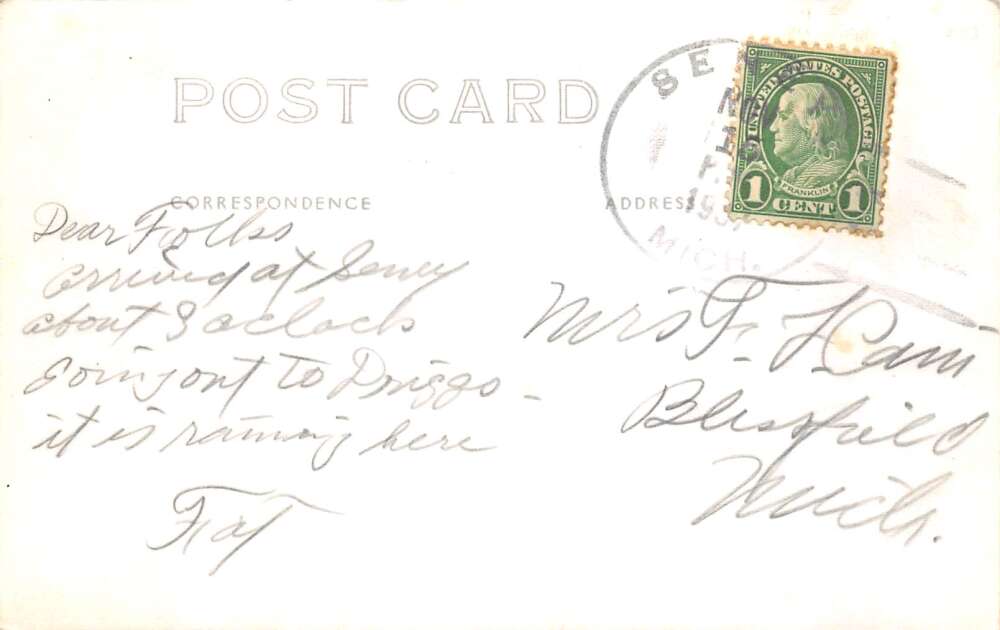 POST CARD
CORRESPONDENCE
ADDRESS
SE
NO
193
MICH.
UNITED STATES POSTAGE
FRANKLIN
1 CENT 1
Dear Folks
arrived at Seney
about 3 oclock
Going out to Driggs -
it is raining here
Fat
Mrs F. Ham
Blissfield
Mich.